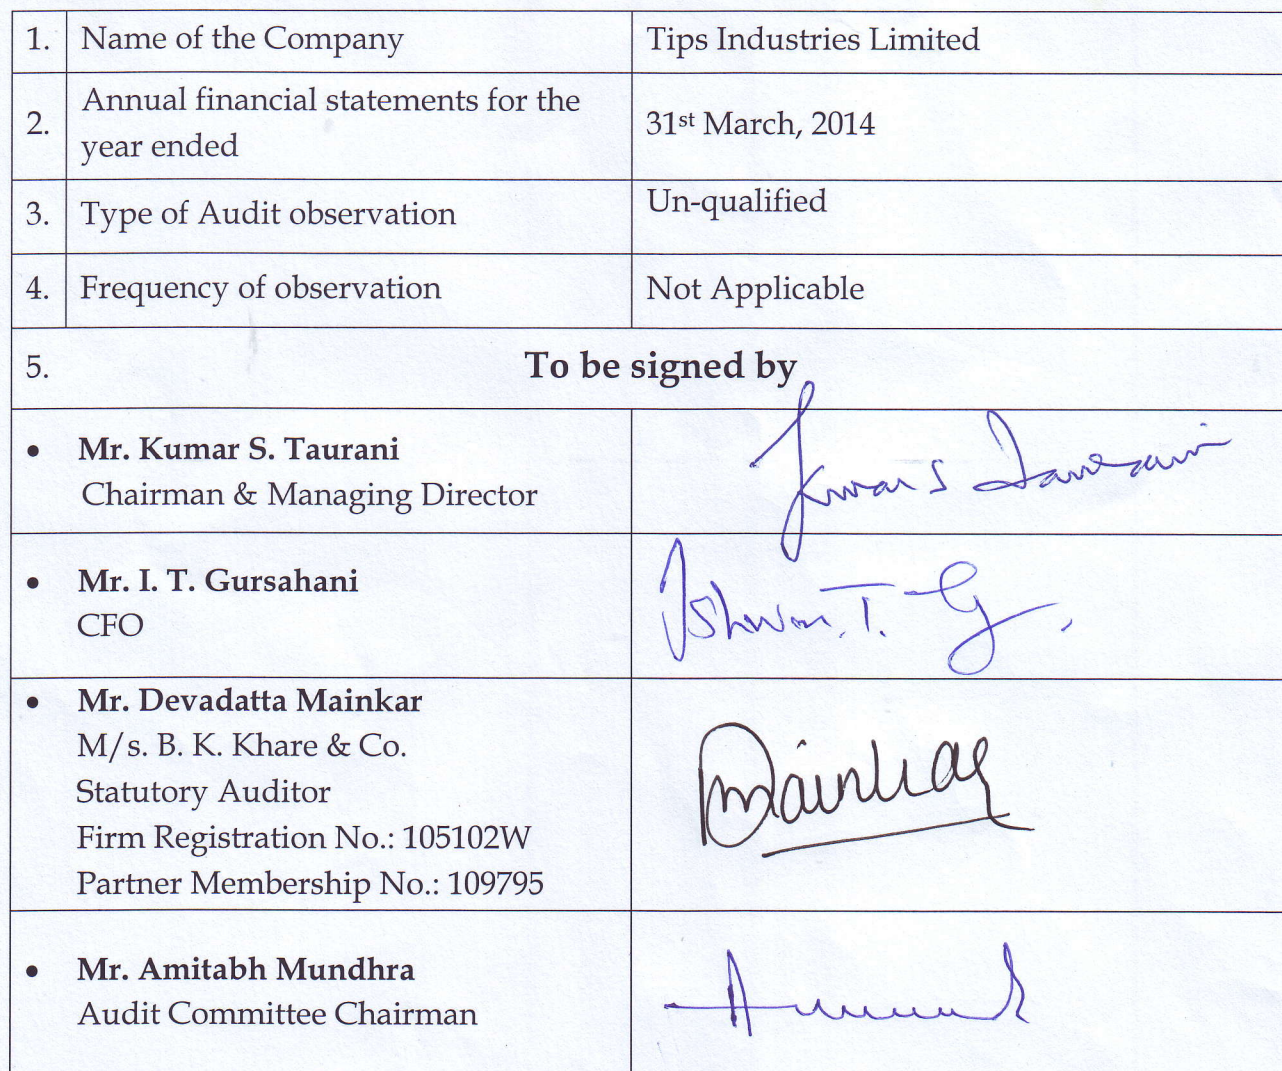 1. Name of the Company Tips Industries Limited
2. Annual financial statements for the
year ended
31st March, 2014
3. Type of Audit observation Un-qualified
4. Frequency of observation Not Applicable
5. To be signed by
• Mr. Kumar S. Taurani
Chairman & Managing Director
Kumar S Taurani
• Mr. I. T. Gursahani
CFO
Ishwar. T. G.
• Mr. Devadatta Mainkar
M/s. B. K. Khare & Co.
Statutory Auditor
Firm Registration No.: 105102W
Partner Membership No.: 109795
Mainkar
• Mr. Amitabh Mundhra
Audit Committee Chairman